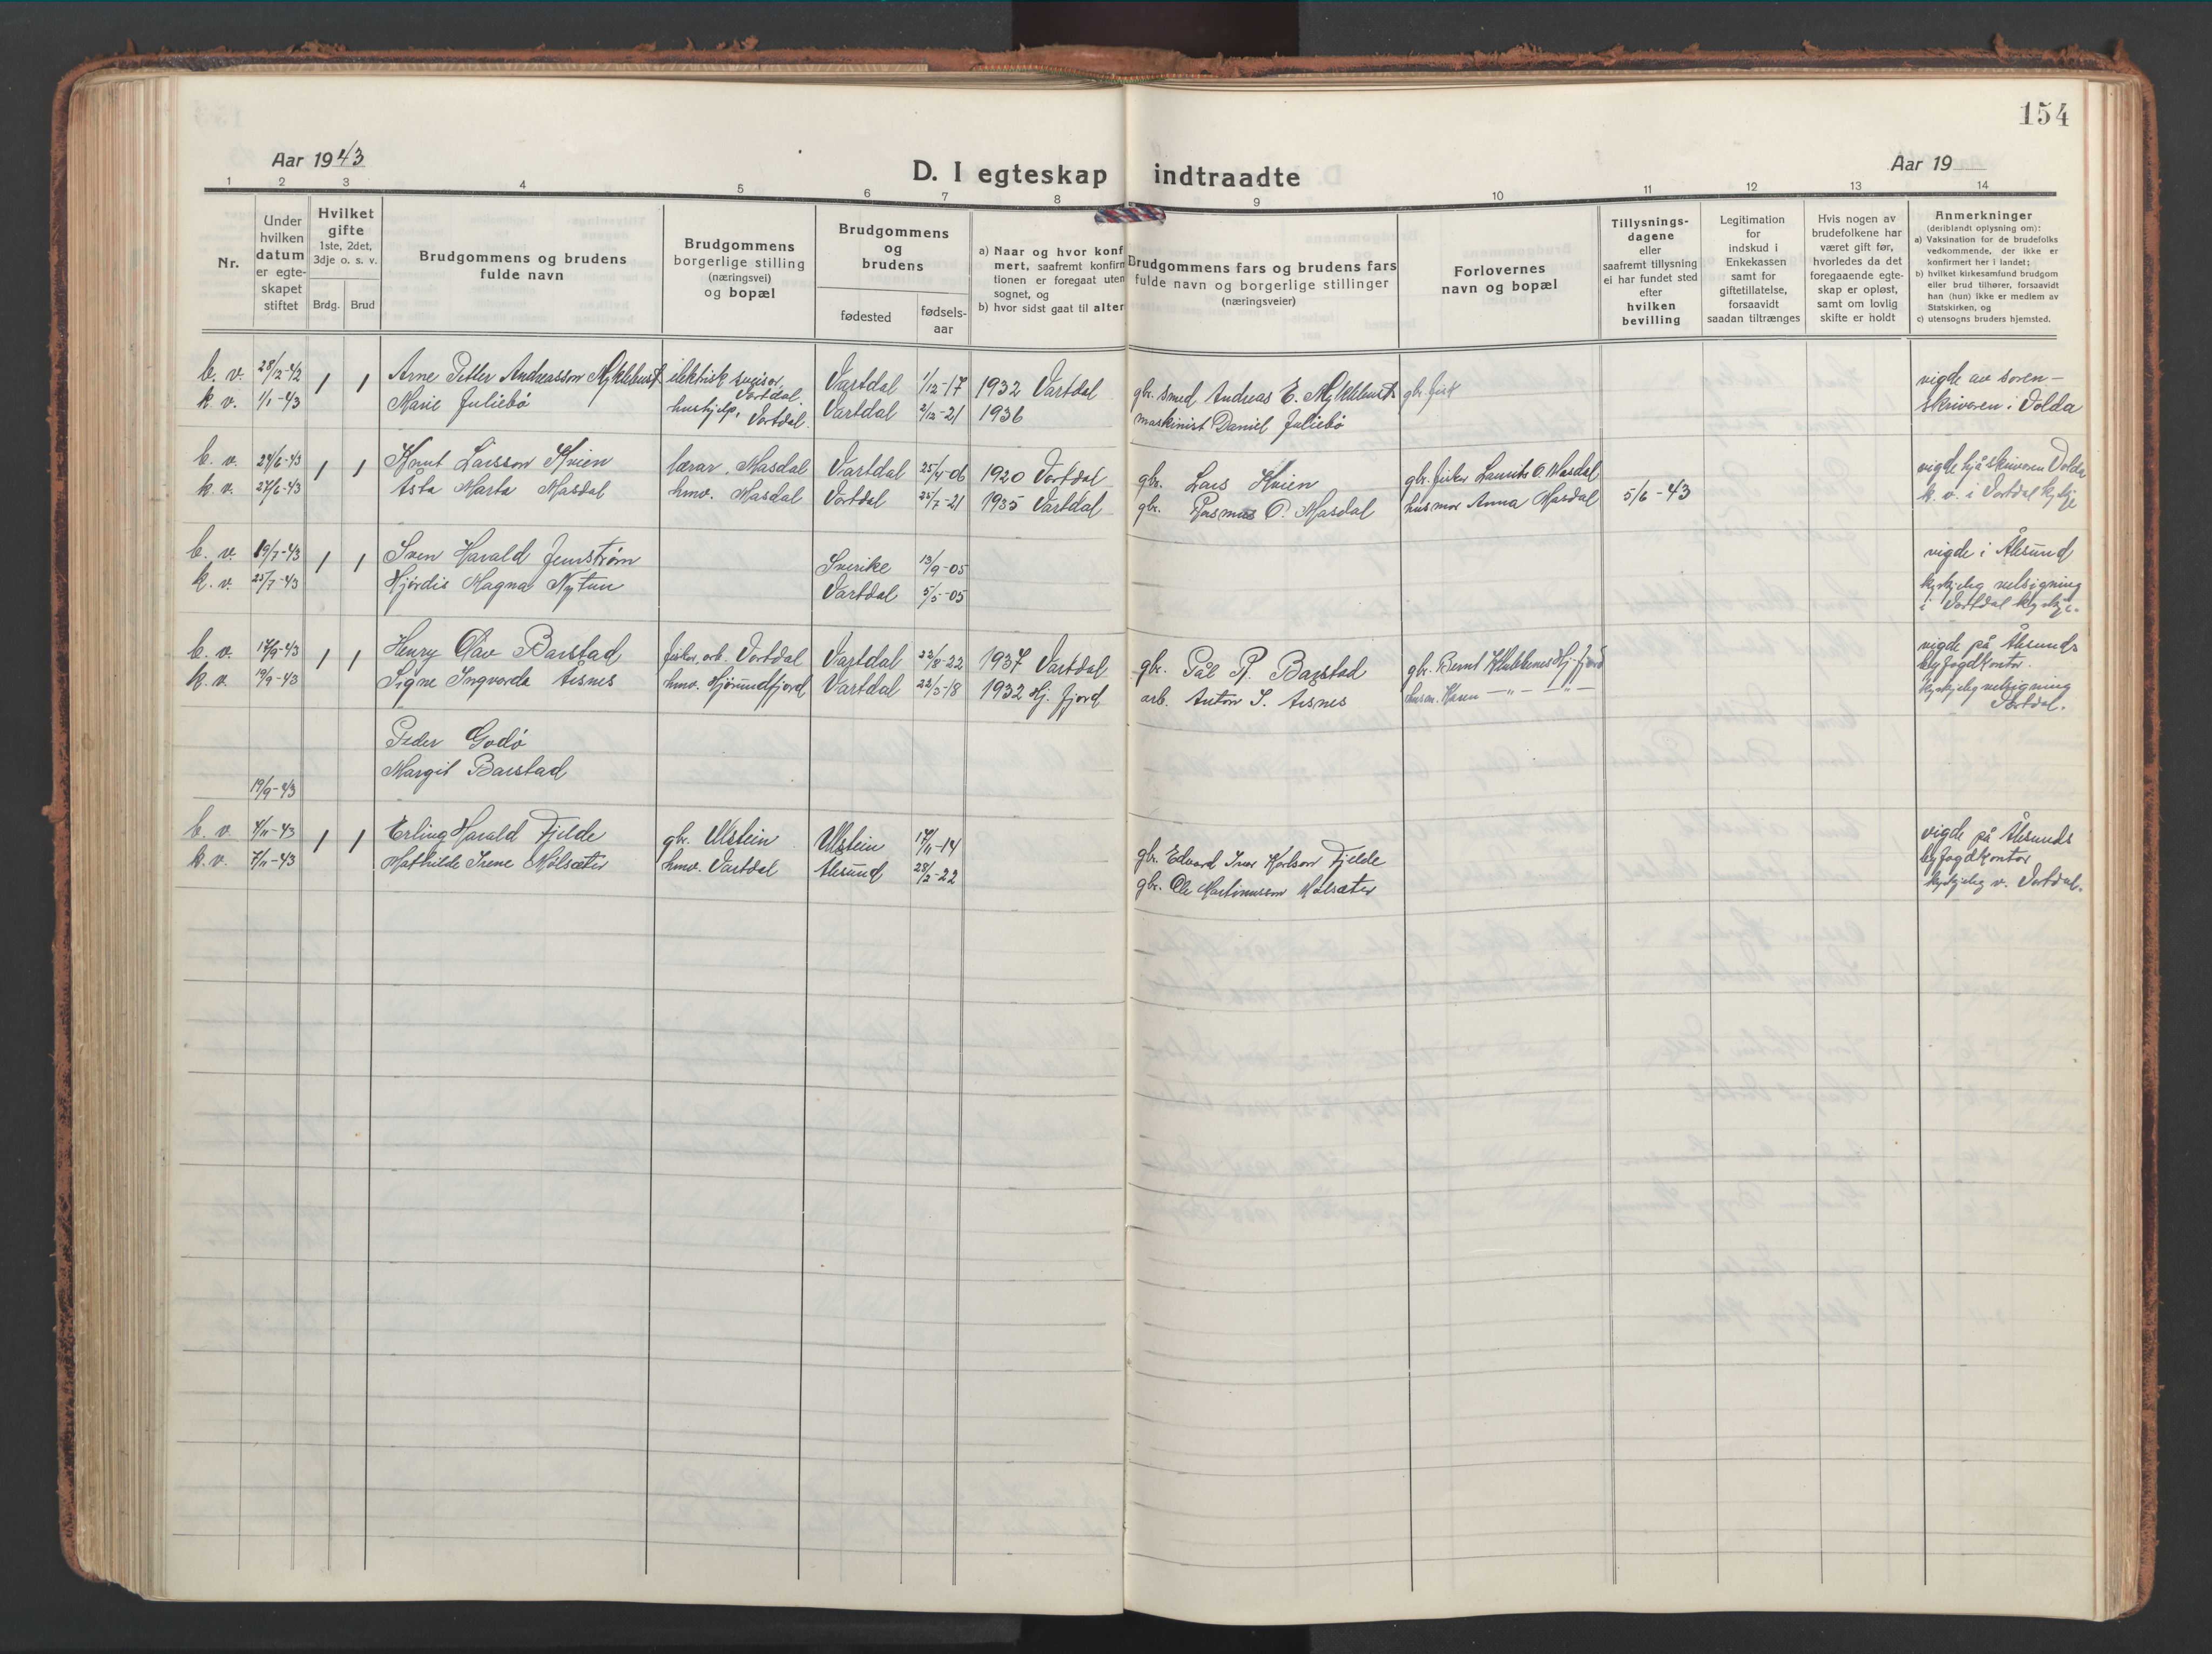 154
Aar 1943
D. I egteskap indtraadte
Aar 19
1 2 3 4 5 6 7 8 9 10 11 12 13 14
Nr.
Under
hvilken
datum
er egte-
skapet
stiftet
Hvilket
gifte
1ste, 2det,
3dje o. s. v.
Brdg. Brud
Brudgommens og brudens
fulde navn
Brudgommens
borgerlige stilling
(næringsvei)
og bopæl
Brudgommens
og
brudens
fødested
fødsels-
aar
a) Naar og hvor konf
mert, saafremt konfirm
tionen er foregaat uten
sognet, og
b) hvor sidst gaat til alter
Brudgommens fars og brudens fars
fulde navn og borgerlige stillinger
(næringsveier)
Forlovernes
navn og bopæl
Tillysnings-
dagene
eller
saafremt tillysning
ei har fundet sted
efter
hvilken
bevilling
Legitimation
for
indskud i
Enkekassen
samt for
giftetillatelse,
forsaavidt
saadan tiltrænges
Hvis nogen av
brudefolkene har
været gift før,
hvorledes da det
foregaaende egte-
skap er opløst,
samt om lovlig
skifte er holdt
Anmerkninger
(deriblandt oplysning om):
a) Vaksination for de brudefolks
vedkommende, der ikke er
konfirmert her i landet;
b) hvilket kirkesamfund brudgom
eller brud tilhører, forsaavidt
han (hun) ikke er medlem av
Statskirken, og
c) utensogns bruders hjemsted.
b. v. 28/12-42 1 1 Arne Petter Andreasson Myklebust elektrisk sveiser, Vartdal. Vartdal 1/12-17 1932 Vartdal gbr. smed Andreas E. Myklebust gbr. fisk vigde av soren-
k. v. 1/1-43 Marie Juliebø hushjelp, Vartdal. Vartdal 2/12-21 1936 maskinist Daniel Juliebø skrivaren i Volda
b. v. 24/6-43 1 1 Knut Larsson Hvien lærar, Masdal Vartdal 25/4-06 1920 Vartdal gbr. Lars Hvien gbr. fisker Laurits O. Masdal vigde hjå skrivaren Volda
k. v. 27/6-43 Åsta Marta Masdal hmv. Masdal Vartdal 25/7-21 1935 Vartdal gbr. Rasmus O. Masdal husmor Anna Masdal 5/6-43 k. v. i Vartdal kyrkje
b. v. 19/7-43 1 1 Sven Harald Jernstrøm Sverike 13/9-05 vigde i Ålesund
k. v. 25/7-43 Hjørdis Magna Nytun Vartdal 5/5-05 kyrkjeleg velsigning
i Vartdal kyrkje.
b. v. 17/9-43 1 1 Henry Olav Barstad fisker, arb. Vartdal Vartdal 22/8-22 1937 Vartdal gbr. Pål R. Barstad gbr. Bernt Hj.fjord vigde på Ålesunds
byfogdkontor.
k. v. 19/9-43 Signe Ingvarda Årsnes hmv. Hjørundfjord Vartdal 22/3-18 1932 Hj. fjord arb. Anton I. Årsnes husm. Karen —"— —"— kyrkjeleg velsigning
Vartdal.
Peder Godø
Margit Barstad
19/9-43
b. v. 4/11-43 1 1 Erling Harald Fjelde gbr. Ulstein Ulstein 17/11-14 gbr. Edvard Ivar Karlson Fjelde vigde på Ålesunds
byfogdkontor
k. v. 7/11-43 Mathilde Irene Mølsæter hmv. Vartdal Ålesund 28/2-22 gbr. Ole Martinusson Mølsæter kyrkjeleg v. Vartdal.